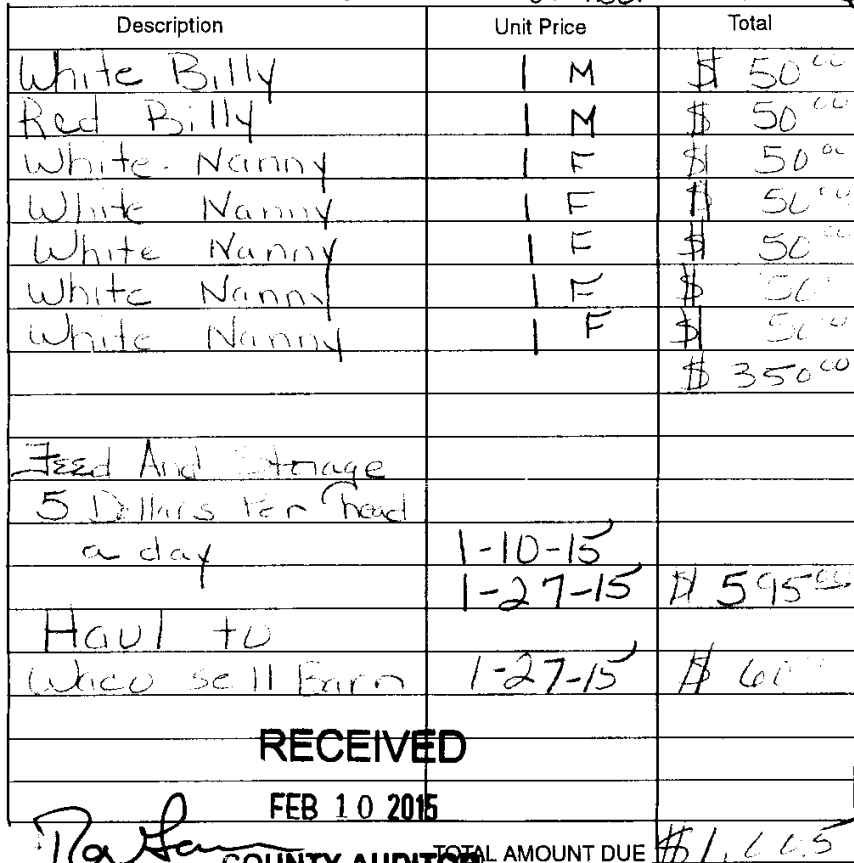 Description Unit Price Total
White Billy 1 M $ 50 00
Red Billy 1 M $ 50 00
White Nanny 1 F $ 50 00
White Nanny 1 F $ 50 00
White Nanny 1 F $ 50 00
White Nanny 1 F $ 50
White Nanny 1 F $ 50 00
$ 350 00
Feed And Storage
5 Dollars Per head
a day 1-10-15
1-27-15 $ 595 00
Haul to
Waco sell Barn 1-27-15 $ 60 00
RECEIVED
FEB 10 2015
COUNTY AUDITOR TOTAL AMOUNT DUE $1,005